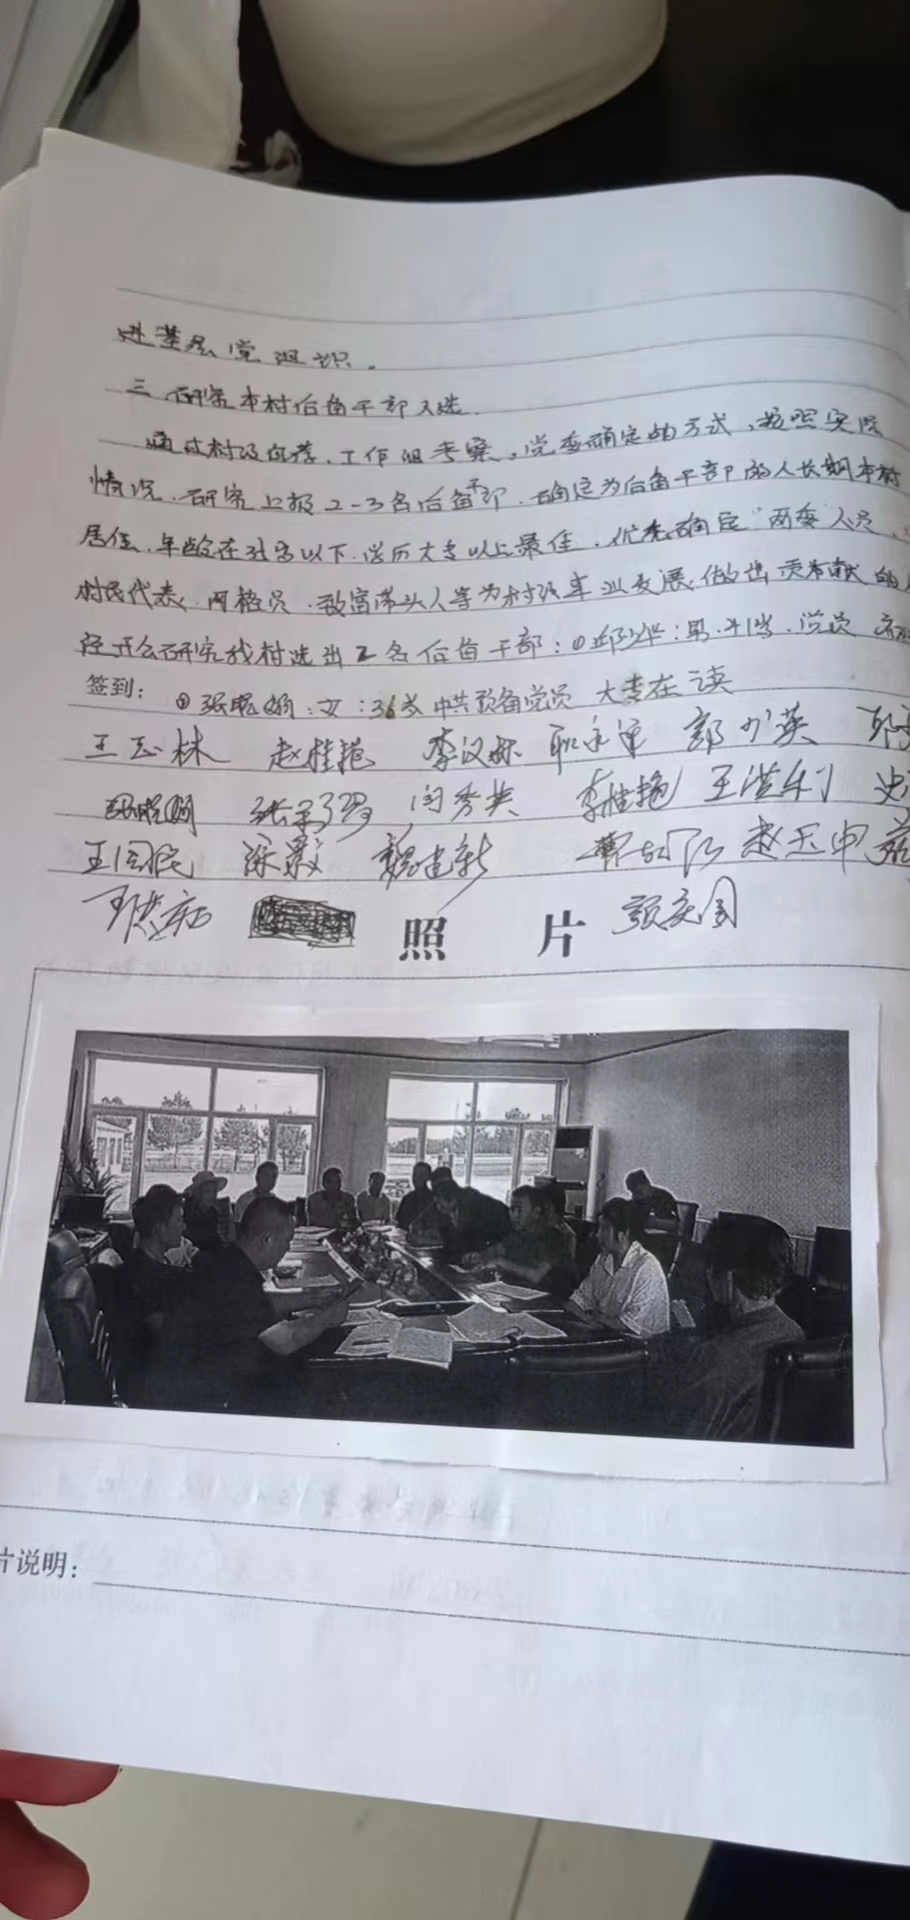 进基层党组织.
三 研究本村后备干部人选.
通过村级自荐、工作组考察、党委确定的方式，按照实际
情况.研究上报2-3名后备干部.确定为后备干部的人长期本村
居住.年龄在35岁以下.学历大专以上最佳.优先确定"两委"人员、
村民代表.网格员.致富带头人等为村级事业发展做出贡献的
经开会研究我村选出2名后备干部:①男.41岁.党员
签到: ②张晓娟:女:36岁 中共预备党员 大专在读
王玉林 赵桂艳 李汉林 郭少英
张晓娟 闫秀英 李桂艳 王洪利
王国民 魏建新 赵玉申
照 片
片说明: